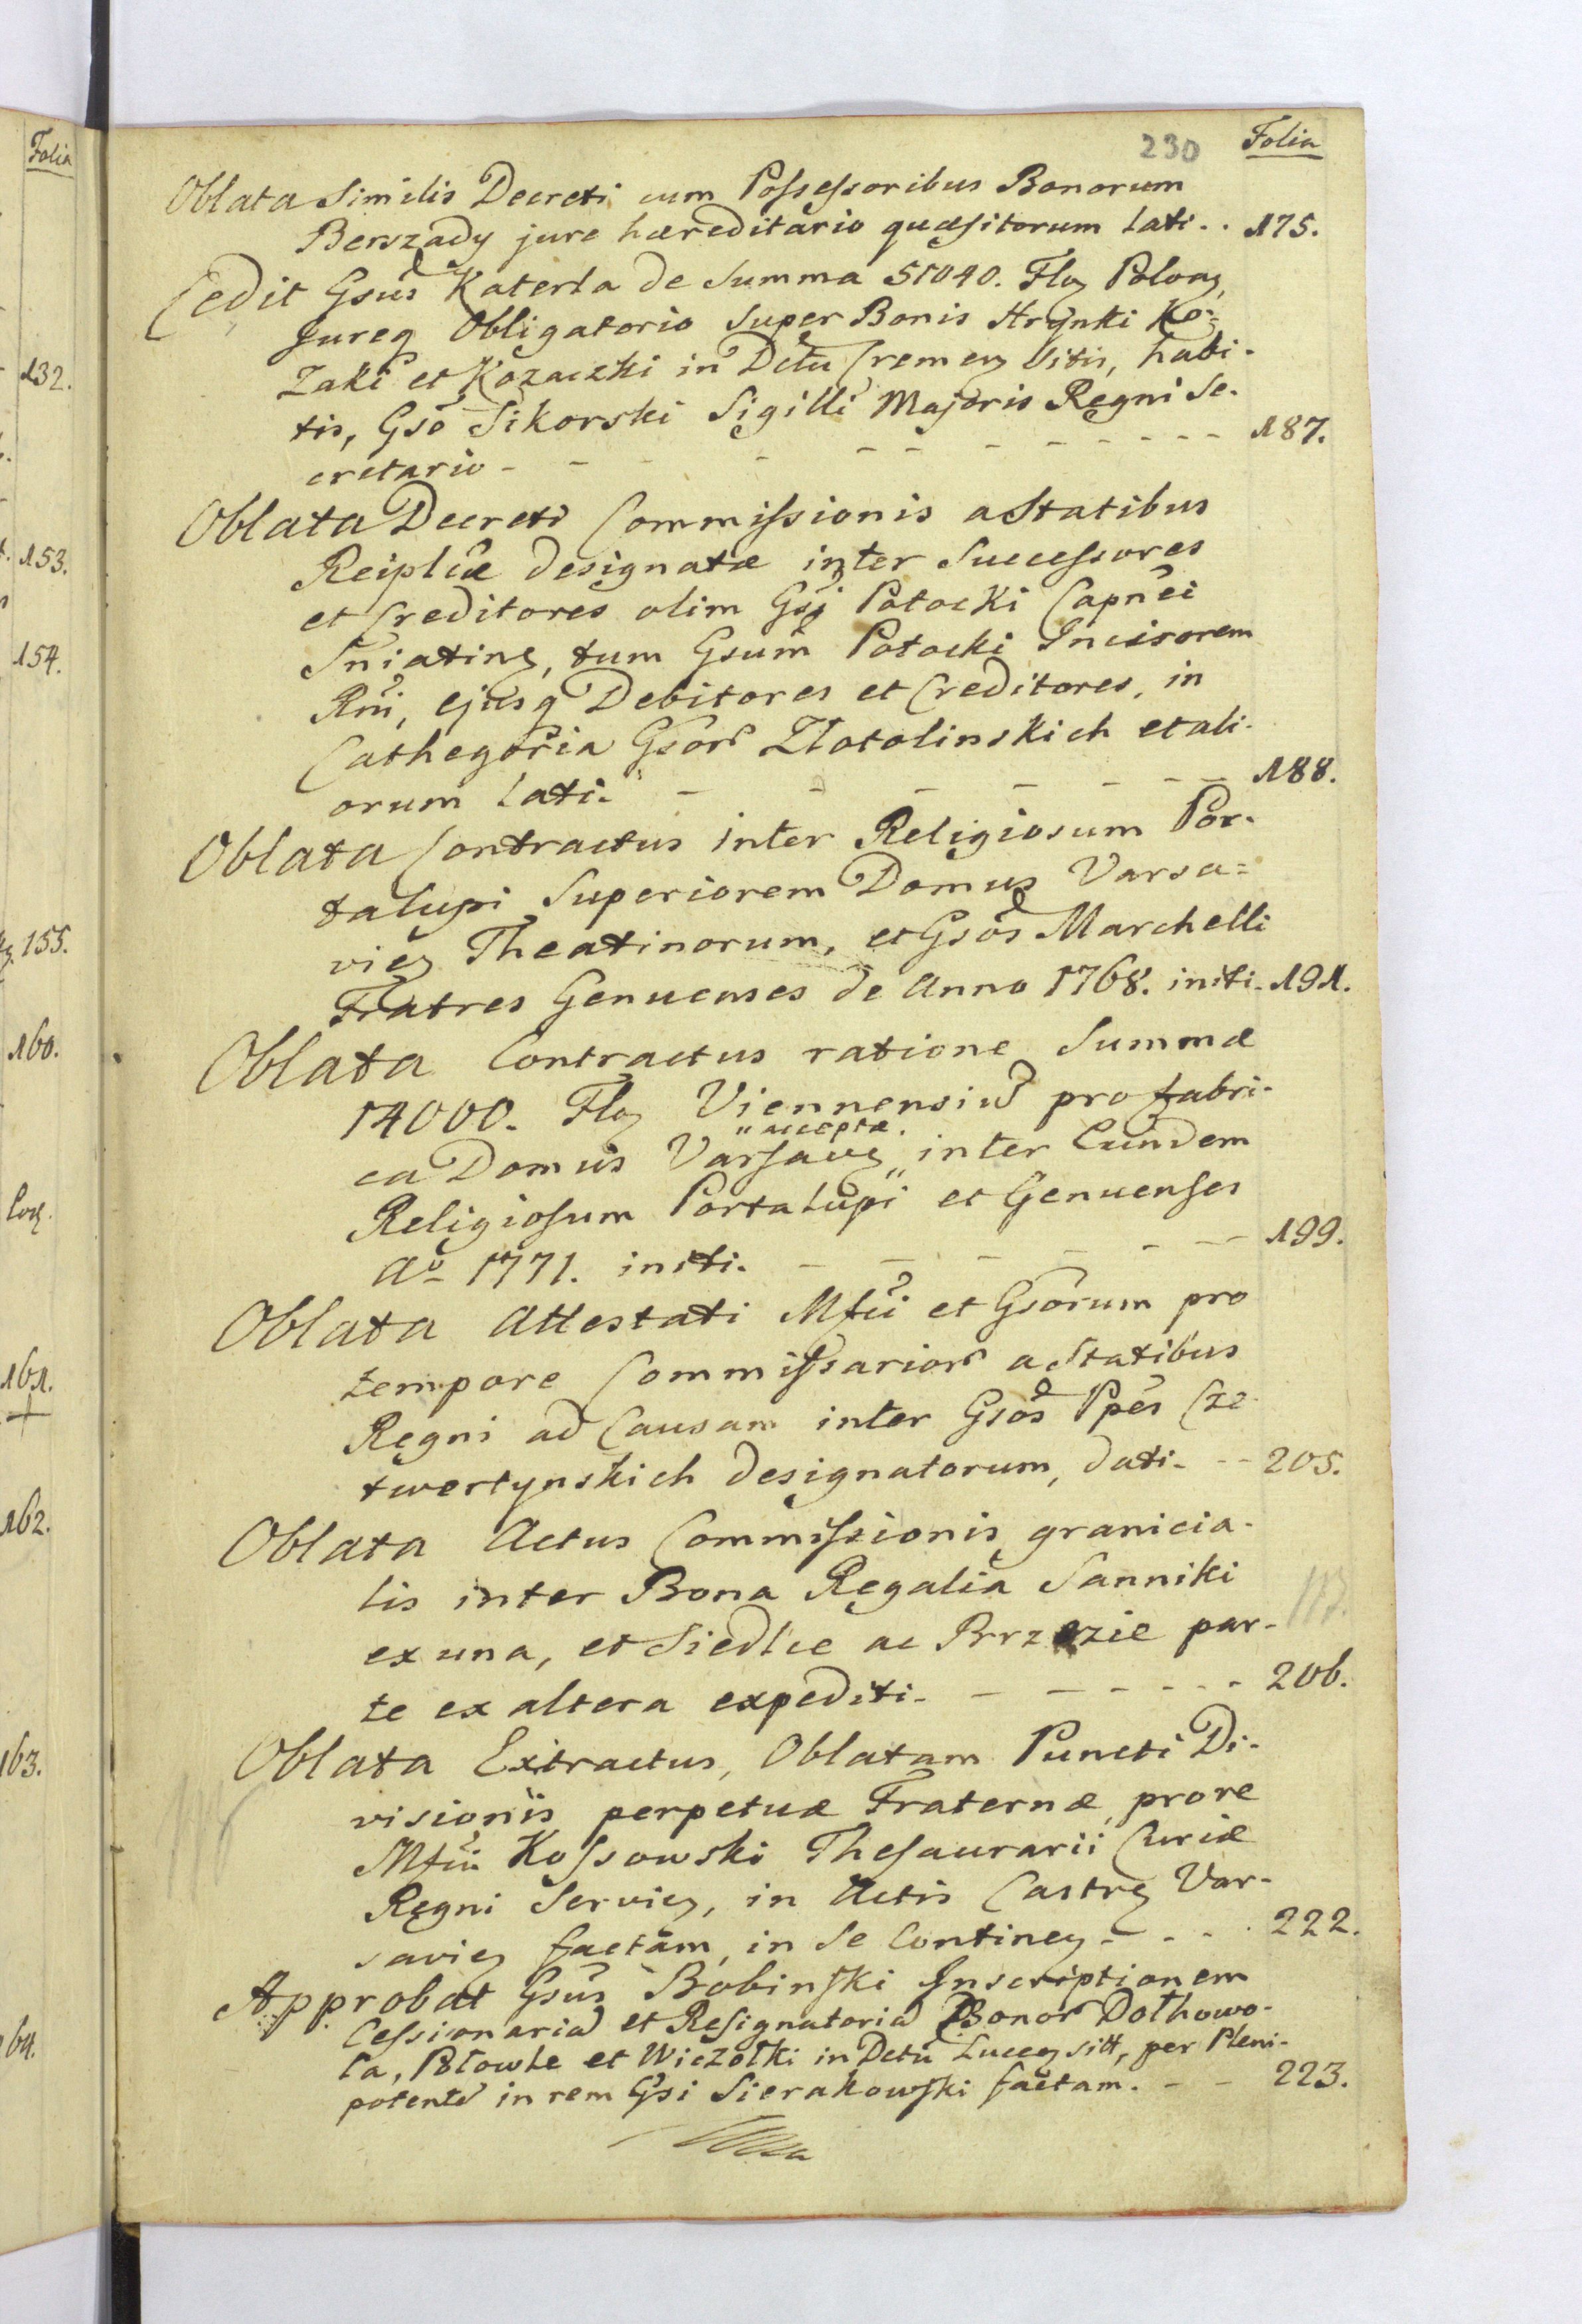 Folia
132.
153.
154.
155.
160.
161.
162.
163.
164.
230 Folia
Oblata Similis Decreti cum Possessoribus Bonorum
Berszady jure hæreditario quæsitorum lati. . 175.
Cedit Gsus Katerla de Summa 51040. Flor Polon,
Jureq Obligatorio Super Bonis Hrynki Ko=
zaki et Kozaczki in Dctu Cremen sitis, habi-
tis, Gso Sikorski Sigilli Majoris Regni Se-
cretario - - - - - - - - - - 187.
Oblata Decreti Commissionis a Statibus
Reiplicæ designatæ inter Successores
et Creditores olim Gsi Potocki Capnei
Sniatin, tum Gsum Potocki Incisorem
Rni, ejusq Debitores et Creditores, in
Cathegoria Gsor Zlotolinskich et ali-
orum lati. - - - - - - - 188.
Oblata Contractus inter Religiosum Por-
talupi Superiorem Domus Varsa=
vien Theatinorum, et Gsos Marchelli
Fratres Genuenses de Anno 1768. initi. 191.
Oblata Contractus ratione Summæ
14000. Flor Viennensiu pro fabri-
ca Domus Varsavi „ inter Eundem
„ acceptæ.
Religiosum Portalupi et Genuenses
Ao 1771. initi. - - - - - - - 199.
Oblata Attestati Mfci et Gsorum pro
tempore Commissarior a Statibus
Regni ad Causam inter Gsos Ppes Cze-
twertynskich designatorum, dati. - - 205.
Oblata Actus Commissionis granicia-
lis inter Bona Regalia Sanniki
ex una, et Siedlce ac Brzezie par-
te ex altera expediti. - - - - - - 206.
Oblata Extractus, Oblatam Puncti Di-
visionis perpetuæ Fraternæ, pro re
Mfci Kossowski Thesaurarii Curiæ
Regni Servien, in Actis Castren Var-
savien factam, in se Continen. - - . 222.
Approbat Gsus Bobinski Inscriptionem
Cessionaria et Resignatoria Bonor Dolhowo-
la, Połowle et Wiczołki in Dctu Luceor sitt, per Pleni-
potente in rem Gsi Sierakowski factam. - - 223.